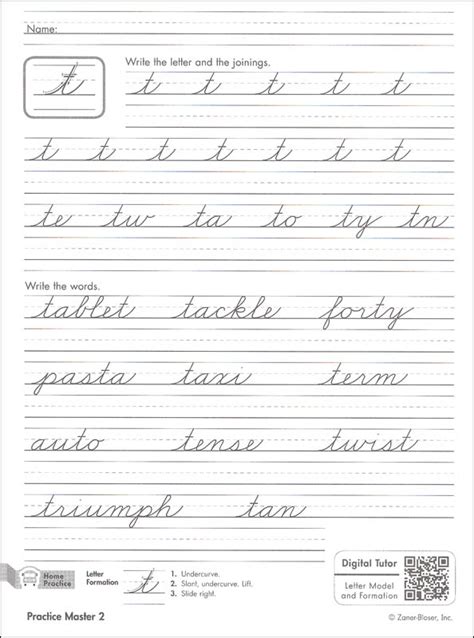 Name:
Write the letter and the joinings.
t t t t t t
t t t t t t t
te tw ta to ty tn
Write the words.
tablet tackle forty
pasta taxi term
auto tense twist
triumph tan
Home Practice
Letter Formation
t
1. Undercurve.
2. Slant, undercurve. Lift.
3. Slide right.
Digital Tutor
Letter Model and Formation
Practice Master 2
© Zaner-Bloser, Inc.